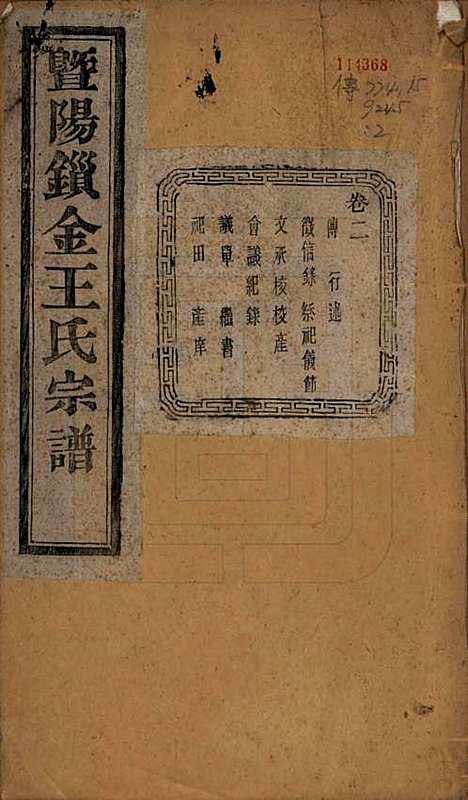 暨陽鎖金王氏宗譜
卷二
傳 行述
徵信錄 祭祀儀節
文承校校產
會議紀錄
議單 繼書
祀田 產库
114368
傳
9245
:2